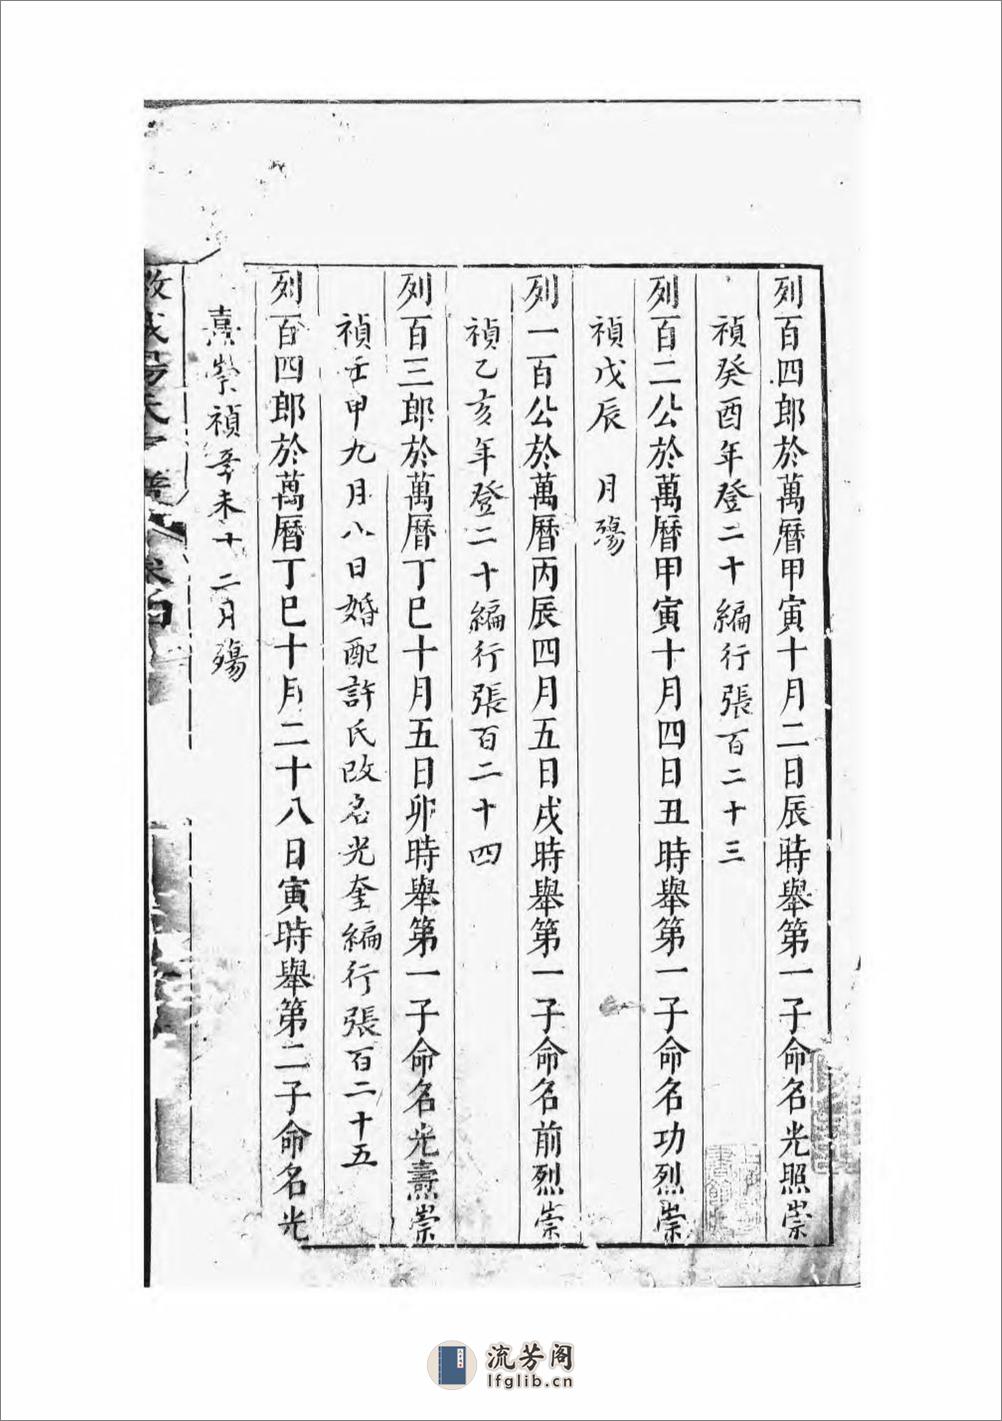 列百四郎於萬曆甲寅十月二日辰時舉第一子命名光照崇
禎癸酉年登二十編行張百二十三
列百二公於萬曆甲寅十月四日丑時舉第一子命名功烈崇
禎戊辰 月殤
列一百公於萬曆丙辰四月五日戌時舉第一子命名前烈崇
禎乙亥年登二十編行張百二十四
列百三郎於萬曆丁巳十月五日卯時舉第一子命名光燾崇
禎壬申九月八日婚配許氏改名光奎編行張百二十五
列百四郎於萬曆丁巳十月二十八日寅時舉第二子命名光
熹崇禎辛未十二月殤
流芳阁
lfglib.cn